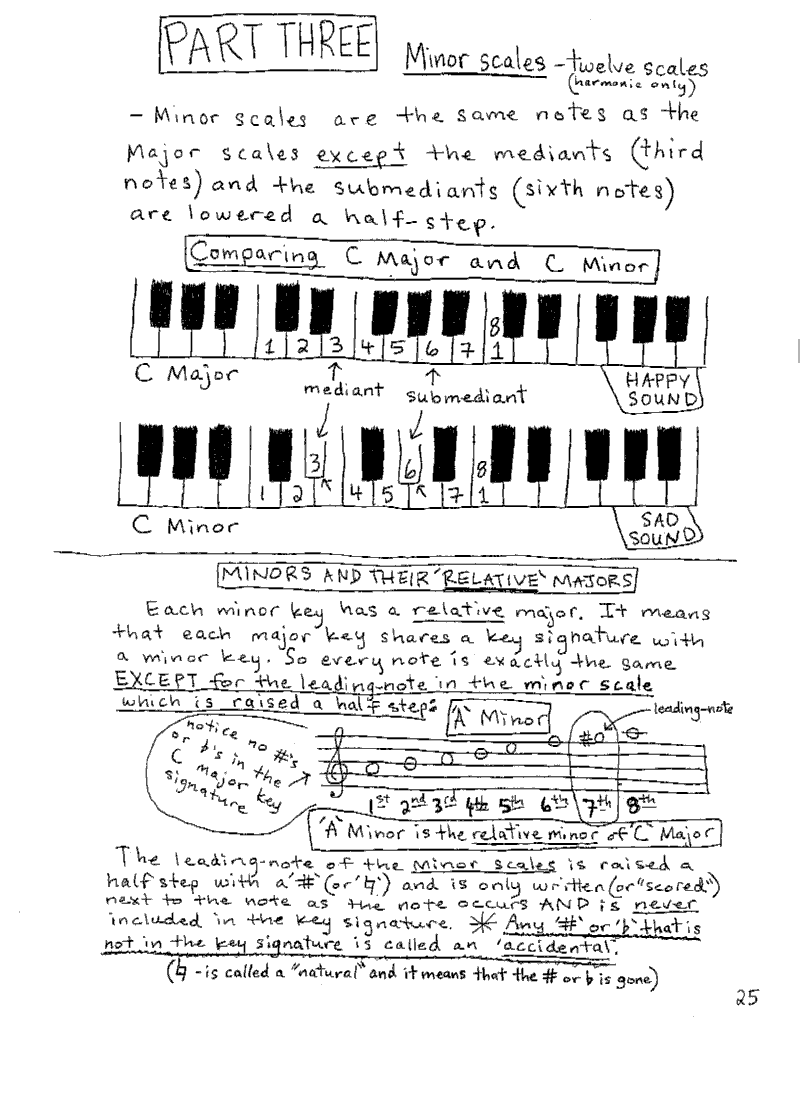 PART THREE
Minor scales - twelve scales
(harmonic only)
- Minor scales are the same notes as the
Major scales except the mediants (third
notes) and the submediants (sixth notes)
are lowered a half-step.
Comparing C Major and C Minor
8
1 2 3 4 5 6 7 1
C Major
HAPPY
SOUND
mediant
submediant
3 6 8
1 2 4 5 7 1
C Minor
SAD
SOUND
MINORS AND THEIR 'RELATIVE' MAJORS
Each minor key has a relative major. It means
that each major key shares a key signature with
a minor key. So every note is exactly the same
EXCEPT for the leading-note in the minor scale
which is raised a half step:
'A' Minor
leading-note
notice no #'s
or b's in the
C major key
signature
#
1st 2nd 3rd 4th 5th 6th 7th 8th
'A' Minor is the relative minor of 'C' Major
The leading-note of the minor scales is raised a
half step with a '#' (or '♮') and is only written (or "scored")
next to the note as the note occurs AND is never
included in the key signature. * Any '#' or 'b' that is
not in the key signature is called an 'accidental'.
(♮ - is called a "natural" and it means that the # or b is gone)
25